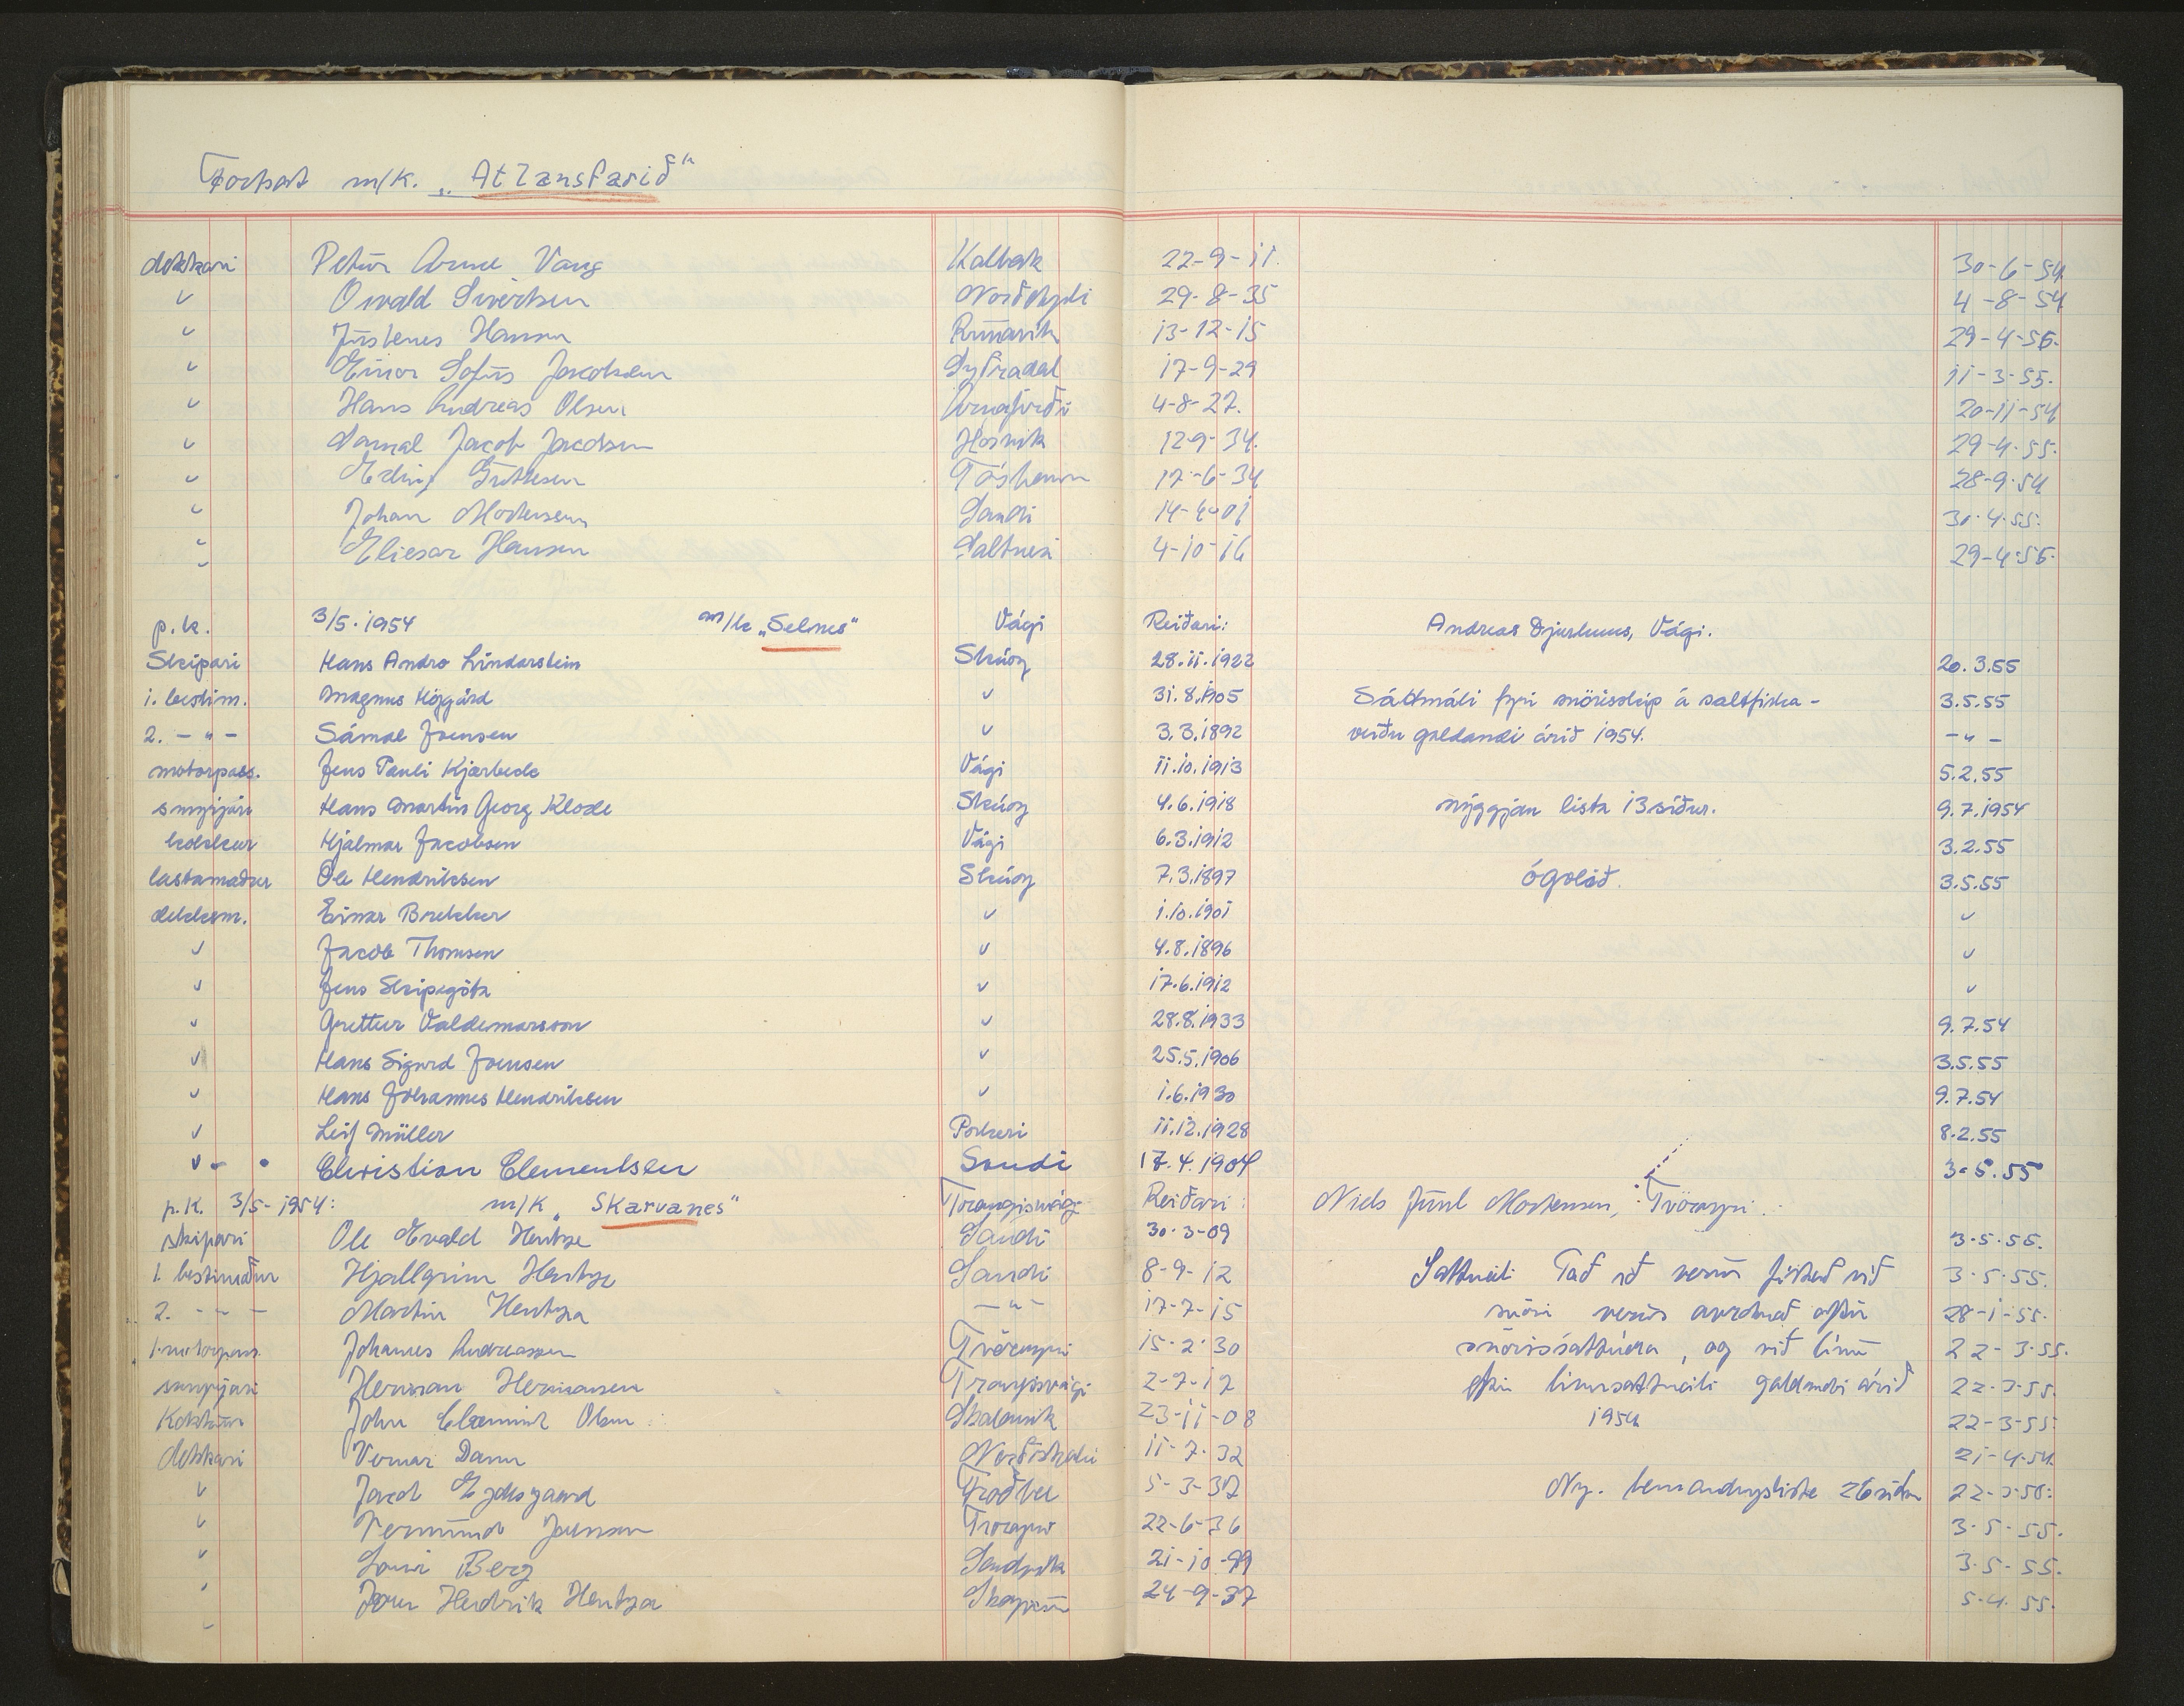 Fortsat m/k. „Atlansfarið"
dekkari Petur Arne Vang Kalbak 22-9-11. 30-6-54
" Osvald Sivertsen Norðskáli 29-8-35 4-8-54
" Justenes Hansen Rúnavík 13-12-15 29-4-55.
" Einar Sofus Jacobsen Syðradal 17-9-29 11-3-55.
" Hans Andreas Olsen Arnafirði 4-8-27. 20-11-54
" Samal Jacob Jacobsen Hósvík 12-9-34. 29-4-55.
" Erling Tórshavn 17-6-34 28-9-54
" Johan Mortensen Sandi 14-4-01 30-4-55.
" Eliesar Hansen Saltnesi 4-10-16 29-4-55.
p.k. 3/5.1954 m/k „Selnes" Vági Reiðari: Andreas Djurhuus, Vági.
Skipari Hans Andro Lindarstein Skúoy 28.11.1922 20.3.55
1. bestim. Magnus Højgård " 31.8.1905 Sáttmáli fyri snörisskip á saltfiska- 3.5.55
2. - " - Sámal Joensen " 3.3.1892 veiðu galdandi árið 1954. - " -
motorpass. Jens Pauli Kjærbech Vági 11.10.1913 5.2.55
smyrjari Hans Martin Georg Klode Skúoy 4.6.1918 nýggjan lista 13 síður. 9.7.1954
kokkur Hjalmar Jacobsen Vági 6.3.1912 3.2.55
lastamaður Ole Hendriksen Skúoy 7.3.1897 ógoldið. 3.5.55
dekksm. Einar Brekker " 1.10.1901 "
" Jacob Thomsen " 4.8.1896 "
" Jens Skipagøta " 17.6.1912 "
" Grettur Valdemarsson " 28.8.1933 9.7.54
" Hans Sigurd Joensen " 25.5.1906 3.5.55
" Hans Jóhannus Hendriksen " 1.6.1930 9.7.54
" Leif Müller Porkeri 11.12.1928 8.2.55
" Christian Clementsen Sandi 17.4.1904 3.5.55
p.k. 3/5-1954: m/k „Skarvanes" Trongisvági Reiðari: Niels Juul Mortensen, Tvöroyri.
skipari Ole Evald Hentze Sandi 30-3-09 3-5-55.
1. bestimaður Hjallgrim Hentze Sandi 8-9-12 Sáttmáli Tað ið verður fiskað við 3-5-55.
2. - " - Martin Hentza - " - 17-7-15 snöri verður avroknað eftir 28-1-55.
1. motorpass. Johannes Andreassen Tvöroyri 15-2-30 snörissáttmála, og við línu 22-3-55.
smyrjari Herman Hermansen Trongisvági 2-7-17 eftir línusáttmáli galdandi árið 22-3-55.
Kokkur John Olsen Skálavík 23-11-08 1954 22-3-55.
dekkari Verner Dam Norðskáli 11-7-32 21-4-54.
" Jacob Trøðbø 5-3-37 Ny. bemandingsliste 26 síður 22-3-55.
" Vermund Joensen Tvöroyri 22-6-36 3-5-55.
" Berg Sandvík 21-10-99 3-5-55.
" Hendrik Hentza Skopun 24-9-37 5-4-55.
"